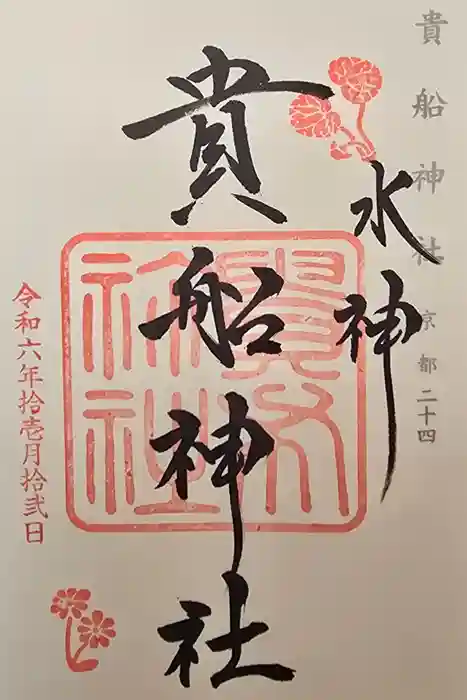 貴船神社 京都二十四
水神
貴船神社
令和六年拾壱月拾弐日